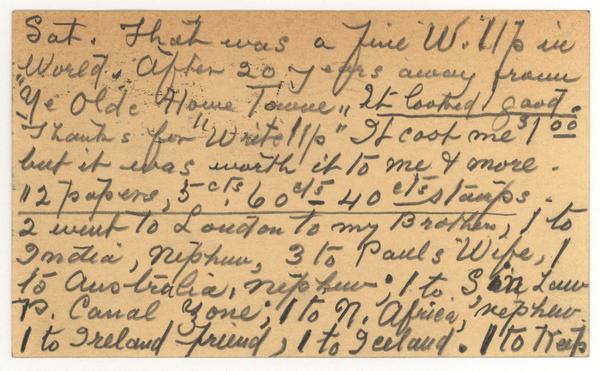 Sat. That was a fine W. Up in
World. After 20 years away from
"Ye Olde Home Towne" It looked good.
Thanks for "Write Up" It cost me $1 00
but it was worth it to me & more.
12 papers, 5 cts. 60 cts - 40 cts stamps.
2 went to London to my Brothers, 1 to
India, nephew, 3 to Pauls Wife, 1
to Australia, nephew; 1 to S in Law
P. Canal Zone; 1 to N. Africa, nephew
1 to Ireland friend, 1 to Iceland. 1 to